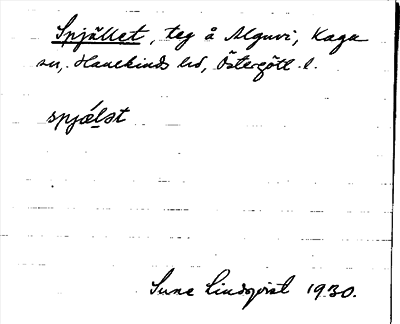 Spjället, teg å Alguvi, Kaga
sn, Hanekinds hd, Östergötl. l.
spjǽlst
Sune Lindqvist 1930.